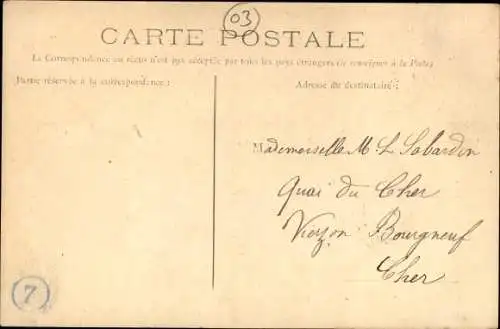 03
CARTE POSTALE
La Correspondance au recto n'est pas acceptée par tous les pays étrangers (se renseigner à la Poste)
Partie réservée à la correspondance :
Adresse du destinataire :
Mademerselle M. L. Sabardin
Quai du Cher
Vierzon Bourgneuf
Cher
7